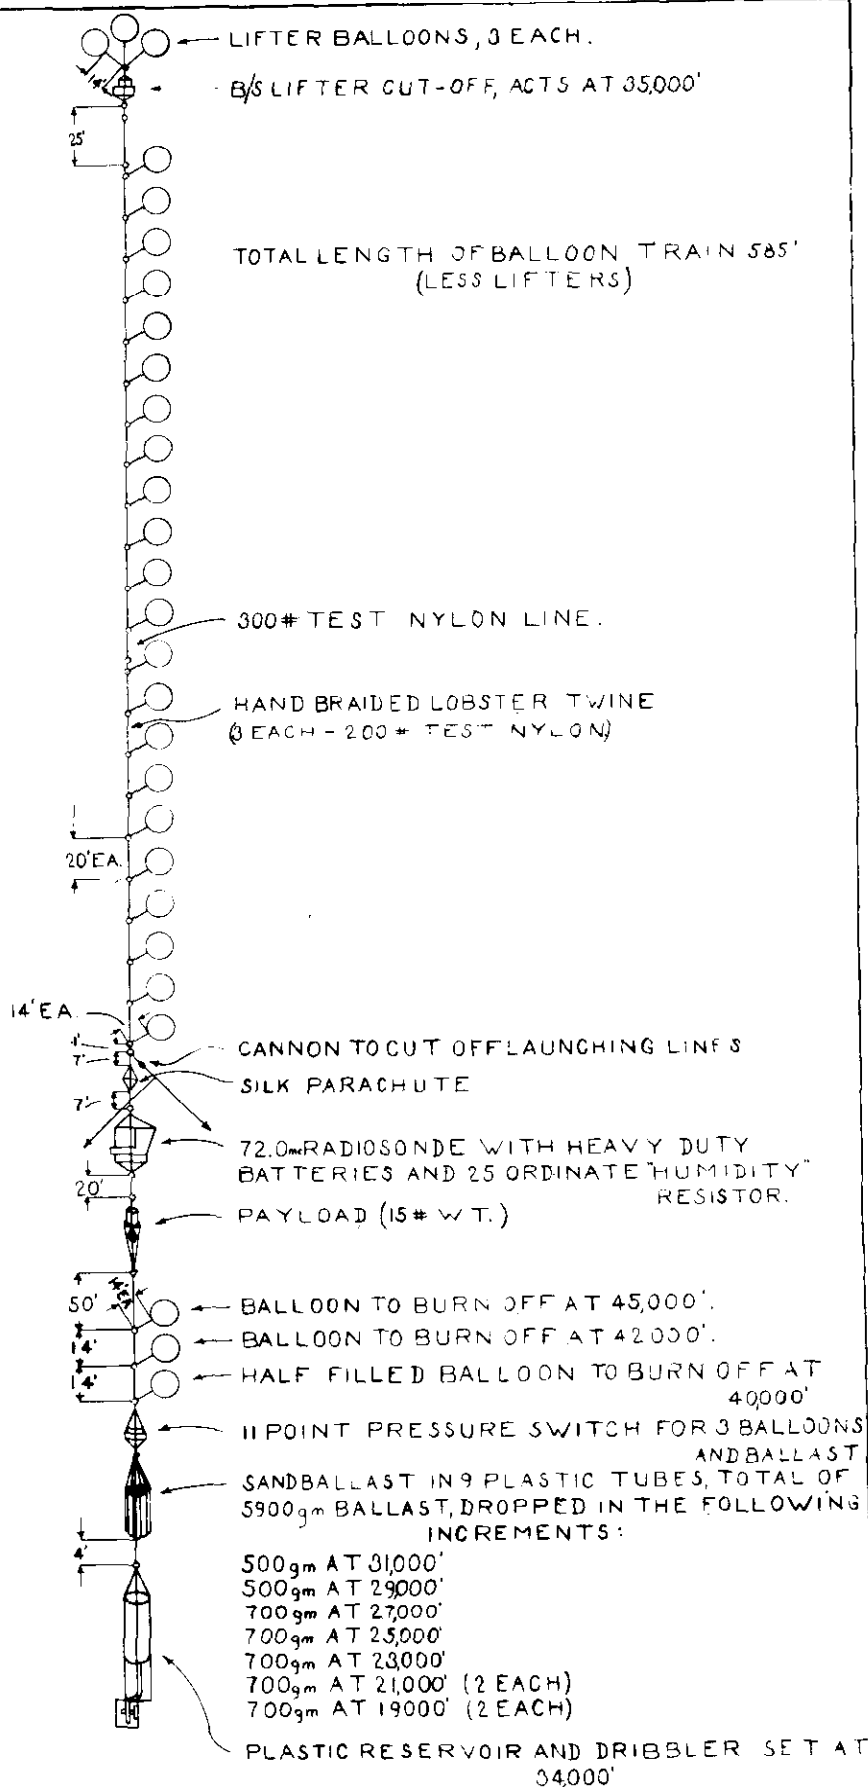 LIFTER BALLOONS, 3 EACH.
14'
B/S LIFTER CUT-OFF, ACTS AT 35,000'
25'
TOTAL LENGTH OF BALLOON TRAIN 585'
(LESS LIFTERS)
300# TEST NYLON LINE.
HAND BRAIDED LOBSTER TWINE
(3 EACH - 200# TEST NYLON)
20' EA.
14' EA.
CANNON TO CUT OFF LAUNCHING LINES
1'
7'
SILK PARACHUTE
7'
72.0mc RADIOSONDE WITH HEAVY DUTY
BATTERIES AND 25 ORDINATE "HUMIDITY"
RESISTOR.
20'
PAYLOAD (15# WT.)
50'
BALLOON TO BURN OFF AT 45,000'.
14'
BALLOON TO BURN OFF AT 42000'.
14'
HALF FILLED BALLOON TO BURN OFF AT
40,000'
11 POINT PRESSURE SWITCH FOR 3 BALLOONS
AND BALLAST
SAND BALLAST IN 9 PLASTIC TUBES, TOTAL OF
5900gm BALLAST, DROPPED IN THE FOLLOWING
INCREMENTS:
4'
500gm AT 31,000'
500gm AT 29,000'
700gm AT 27,000'
700gm AT 25,000'
700gm AT 23,000'
700gm AT 21,000' (2 EACH)
700gm AT 19000' (2 EACH)
PLASTIC RESERVOIR AND DRIBBLER SET AT
34,000'